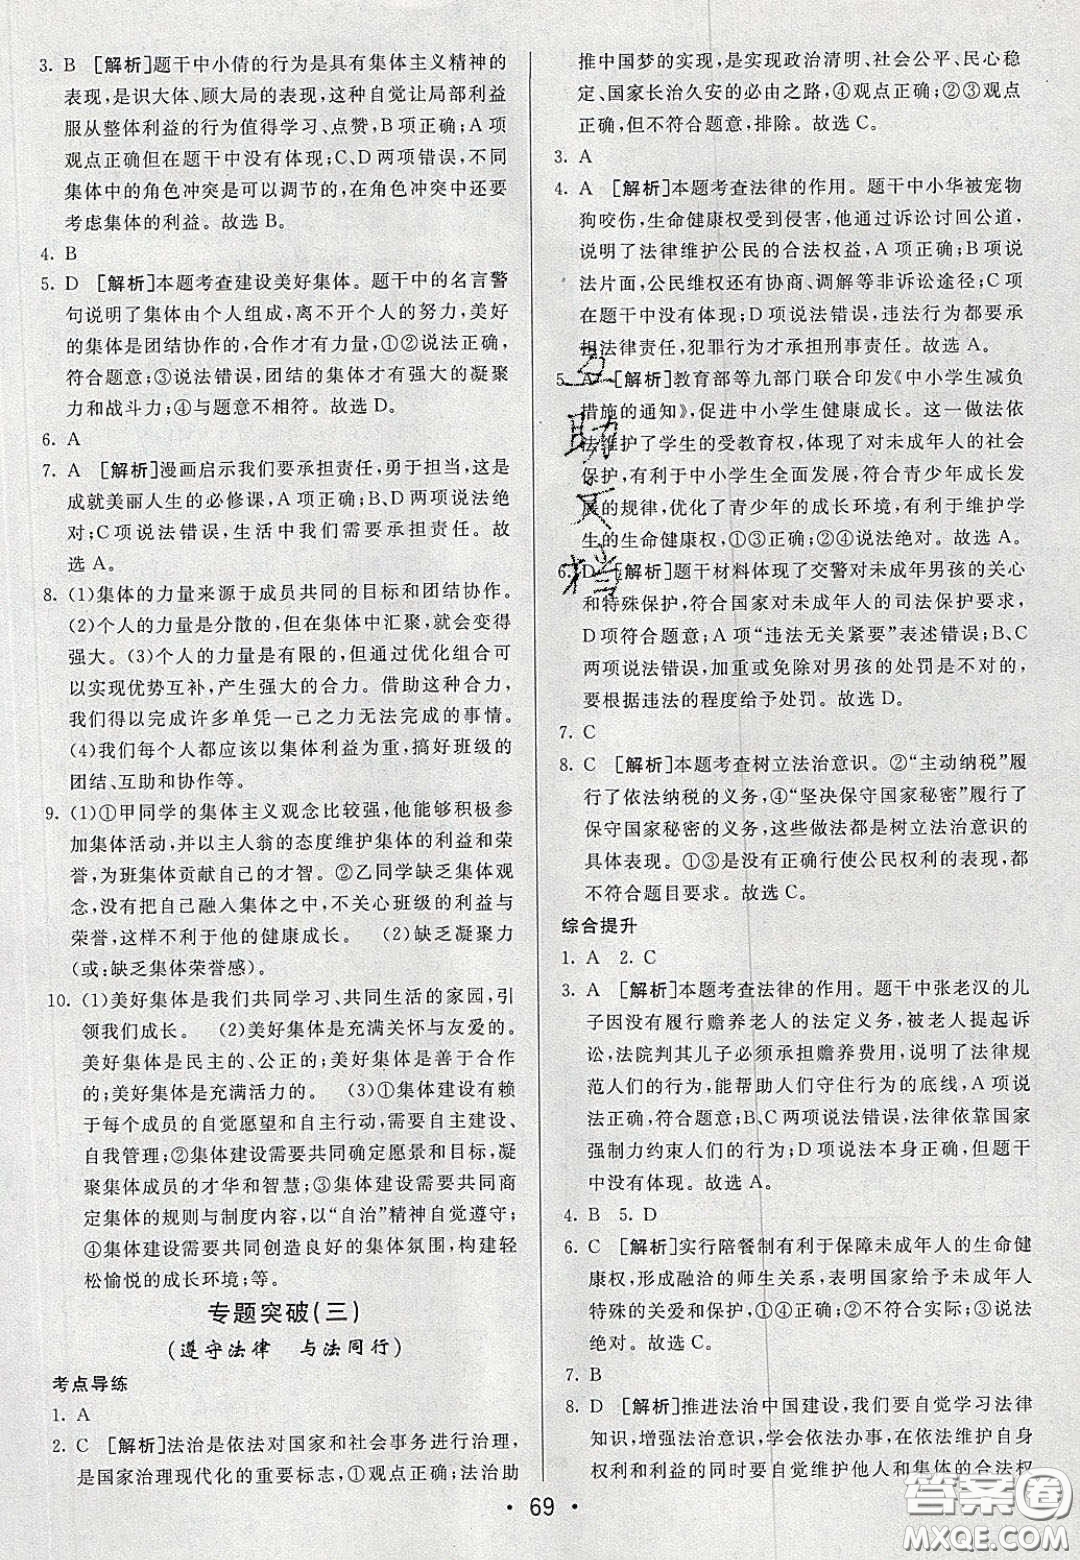 3. B [解析]题干中小倩的行为是具有集体主义精神的
表现,是识大体、顾大局的表现,这种自觉让局部利益
服从整体利益的行为值得学习、点赞,B项正确;A项
观点正确但在题干中没有体现;C、D两项错误,不同
集体中的角色冲突是可以调节的,在角色冲突中还要
考虑集体的利益。故选B。
4. B
5. D [解析]本题考查建设美好集体。题干中的名言警
句说明了集体由个人组成,离不开个人的努力,美好
的集体是团结协作的,合作才有力量,①②说法正确,
符合题意;③说法错误,团结的集体才有强大的凝聚
力和战斗力;④与题意不相符。故选D。
6. A
7. A [解析]漫画启示我们要承担责任,勇于担当,这是
成就美丽人生的必修课,A项正确;B、D两项说法绝
对;C项说法错误,生活中我们需要承担责任。故
选A。
8. (1)集体的力量来源于成员共同的目标和团结协作。
(2)个人的力量是分散的,但在集体中汇聚,就会变得
强大。(3)个人的力量是有限的,但通过优化组合可
以实现优势互补,产生强大的合力。借助这种合力,
我们得以完成许多单凭一己之力无法完成的事情。
(4)我们每个人都应该以集体利益为重,搞好班级的
团结、互助和协作等。
9. (1)①甲同学的集体主义观念比较强,他能够积极参
加集体活动,并以主人翁的态度维护集体的利益和荣
誉,为班集体贡献自己的才智。②乙同学缺乏集体观
念,没有把自己融入集体之中,不关心班级的利益与
荣誉,这样不利于他的健康成长。 (2)缺乏凝聚力
(或:缺乏集体荣誉感)。
10. (1)美好集体是我们共同学习、共同生活的家园,引
领我们成长。 (2)美好集体是充满关怀与友爱的。
美好集体是民主的、公正的;美好集体是善于合作的;
美好集体是充满活力的。 (3)①集体建设有赖
于每个成员的自觉愿望和自主行动,需要自主建设、
自我管理;②集体建设需要共同确定愿景和目标,凝
聚集体成员的才华和智慧;③集体建设需要共同商
定集体的规则与制度内容,以“自治”精神自觉遵守;
④集体建设需要共同创造良好的集体氛围,构建轻
松愉悦的成长环境;等。
专题突破(三)
(遵守法律 与法同行)
考点导练
1. A
2. C [解析]法治是依法对国家和社会事务进行治理,
是国家治理现代化的重要标志,①观点正确;法治助
推中国梦的实现,是实现政治清明、社会公平、民心稳
定、国家长治久安的必由之路,④观点正确;②③观点
正确,但不符合题意,排除。故选C。
3. A
4. A [解析]本题考查法律的作用。题干中小华被宠物
狗咬伤,生命健康权受到侵害,他通过诉讼讨回公道,
说明了法律维护公民的合法权益,A项正确;B项说
法片面,公民维权还有协商、调解等非诉讼途径;C项
在题干中没有体现;D项说法错误,违法行为都要承
担法律责任,犯罪行为才承担刑事责任。故选A。
5. A [解析]教育部等九部门联合印发《中小学生减负
措施的通知》,促进中小学生健康成长。这一做法依
法维护了学生的受教育权,体现了对未成年人的社会
保护,有利于中小学生全面发展,符合青少年成长发
展的规律,优化了青少年的成长环境,有利于维护学
生的生命健康权,①②③正确;④说法绝对。故选A。
6. D [解析]题干材料体现了交警对未成年男孩的关心
和特殊保护,符合国家对未成年人的司法保护要求,
D项符合题意;A项“违法无关紧要”表述错误;B、C
两项说法错误,加重或免除对男孩的处罚是不对的,
要根据违法的程度给予处罚。故选D。
7. C
8. C [解析]本题考查树立法治意识。②“主动纳税”履
行了依法纳税的义务,④“坚决保守国家秘密”履行了
保守国家秘密的义务,这些做法都是树立法治意识的
具体表现。①③是没有正确行使公民权利的表现,都
不符合题目要求。故选C。
综合提升
1. A 2. C
3. A [解析]本题考查法律的作用。题干中张老汉的儿
子因没有履行赡养老人的法定义务,被老人提起诉
讼,法院判其儿子必须承担赡养费用,说明了法律规
范人们的行为,能帮助人们守住行为的底线,A项说
法正确,符合题意;B、C两项说法错误,法律依靠国家
强制力约束人们的行为;D项说法本身正确,但在题
干中没有体现。故选A。
4. B 5. D
6. C [解析]实行陪餐制有利于保障未成年人的生命健
康权,形成融洽的师生关系,表现了给予未成年人
特殊的关爱和保护,①④正确;②不符合实际;③说法
绝对。故选C。
7. B
8. D [解析]推进法治中国建设,我们要自觉学习法律
知识,增强法治意识,学会依法办事,在依法维护自身
权利和利益的同时要自觉维护他人和集体的合法权
• 69 •
互助文档
答案圈
MXQE.COM